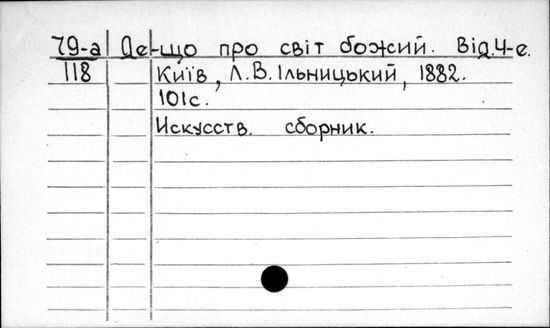 79-а Де-що про світ божий. Від.4-е.
118 Київ, Л.В.Ільницький, 1882.
101с.
Искусств. сборник.